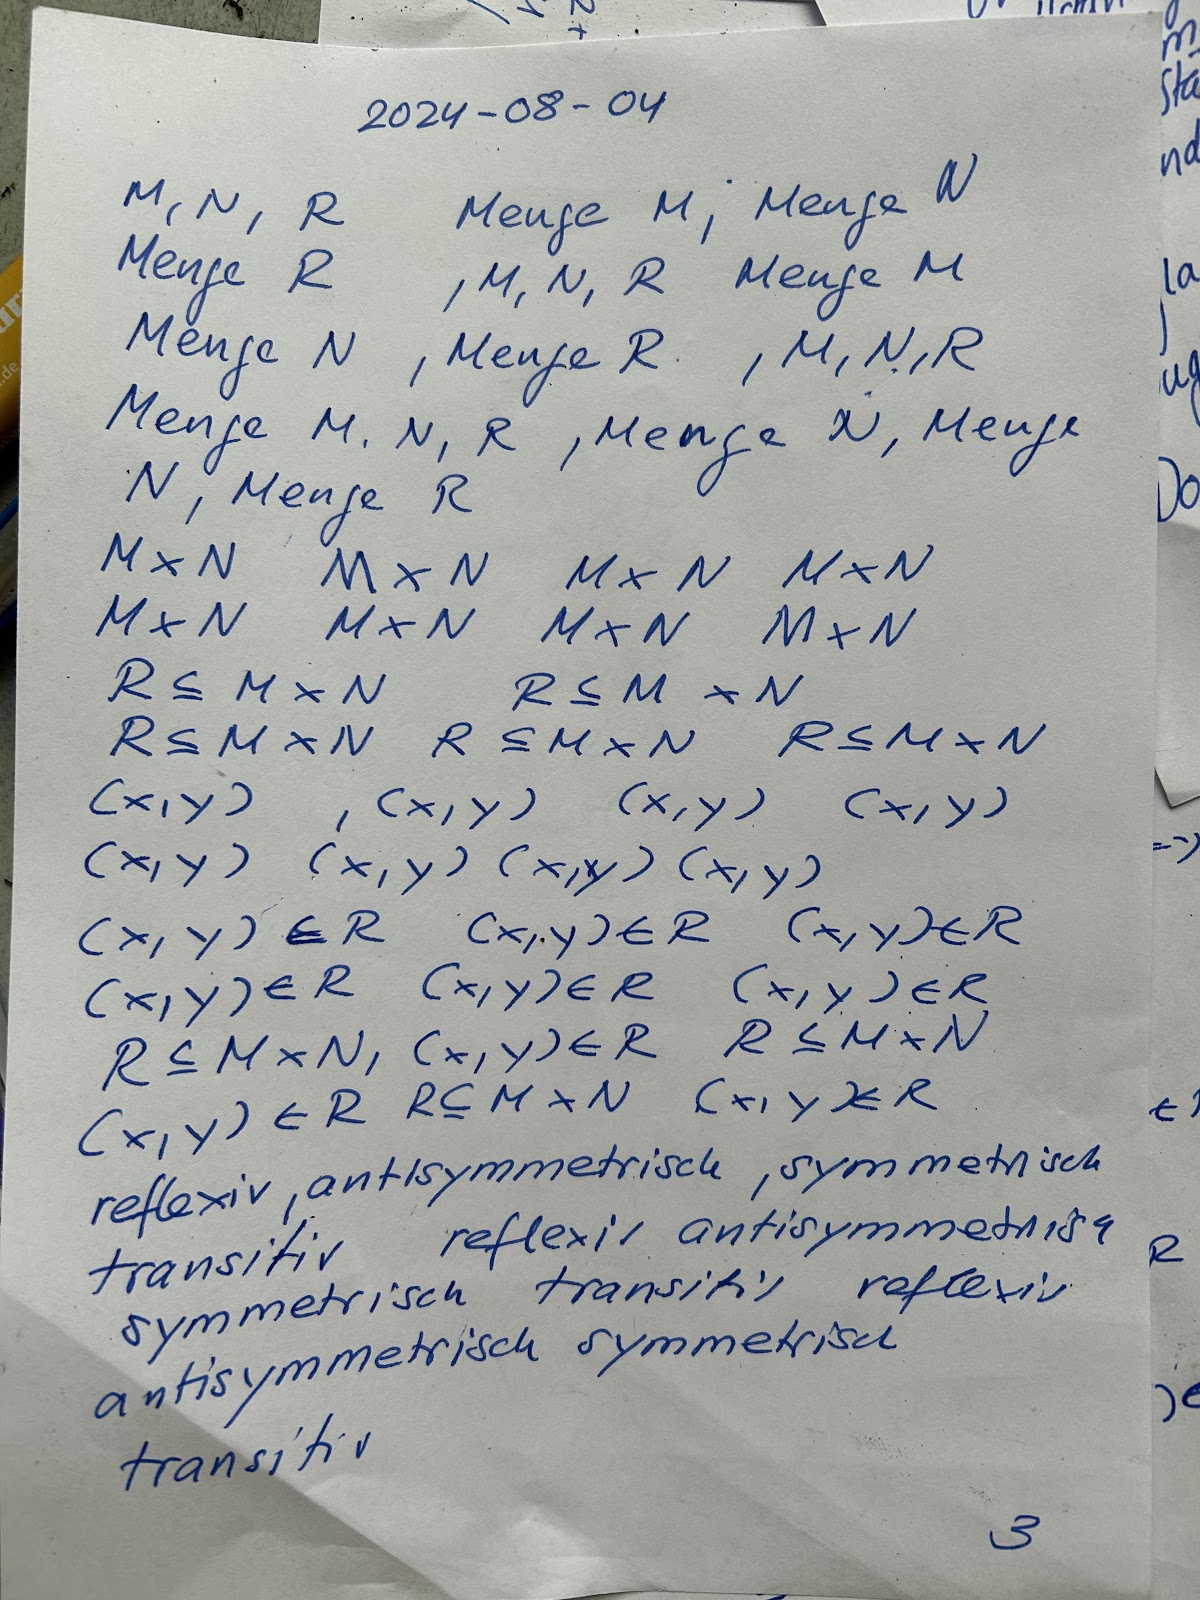 2024-08-04
M, N, R Menge M, Menge N
Menge R , M, N, R Menge M
Menge N , Menge R , M, N, R
Menge M. N, R , Menge N, Menge
N, Menge R
M×N M×N M×N M×N
M×N M×N M×N M×N
R ⊆ M×N R ⊆ M×N
R ⊆ M×N R ⊆ M×N R ⊆ M×N
(x,y) , (x,y) (x,y) (x,y)
(x,y) (x,y) (x,y) (x,y)
(x,y) ∈ R (x,y) ∈ R (x,y) ∈ R
(x,y) ∈ R (x,y) ∈ R (x,y) ∈ R
R ⊆ M×N, (x,y) ∈ R R ⊆ M×N
(x,y) ∈ R R ⊆ M×N (x,y) ∈ R
reflexiv, antisymmetrisch, symmetrisch
transitiv reflexiv antisymmetrisch
symmetrisch transitiv reflexiv
antisymmetrisch symmetrisch
transitiv
3